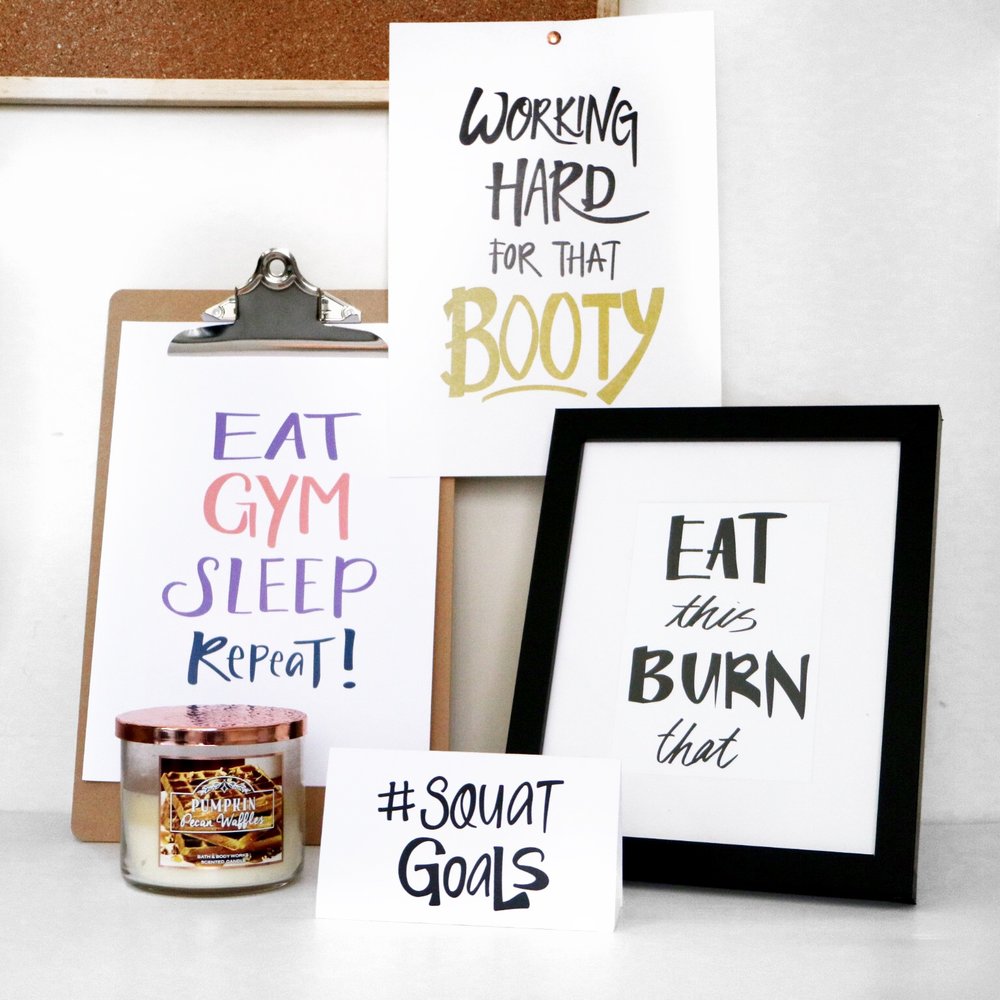 WORKING
HARD
FOR THAT
BOOTY
EAT
GYM
SLEEP
Repeat!
EAT
this
BURN
that
PUMPKIN
Pecan Waffles
BATH & BODY WORKS
SCENTED CANDLE
#SQUAT
GOALS